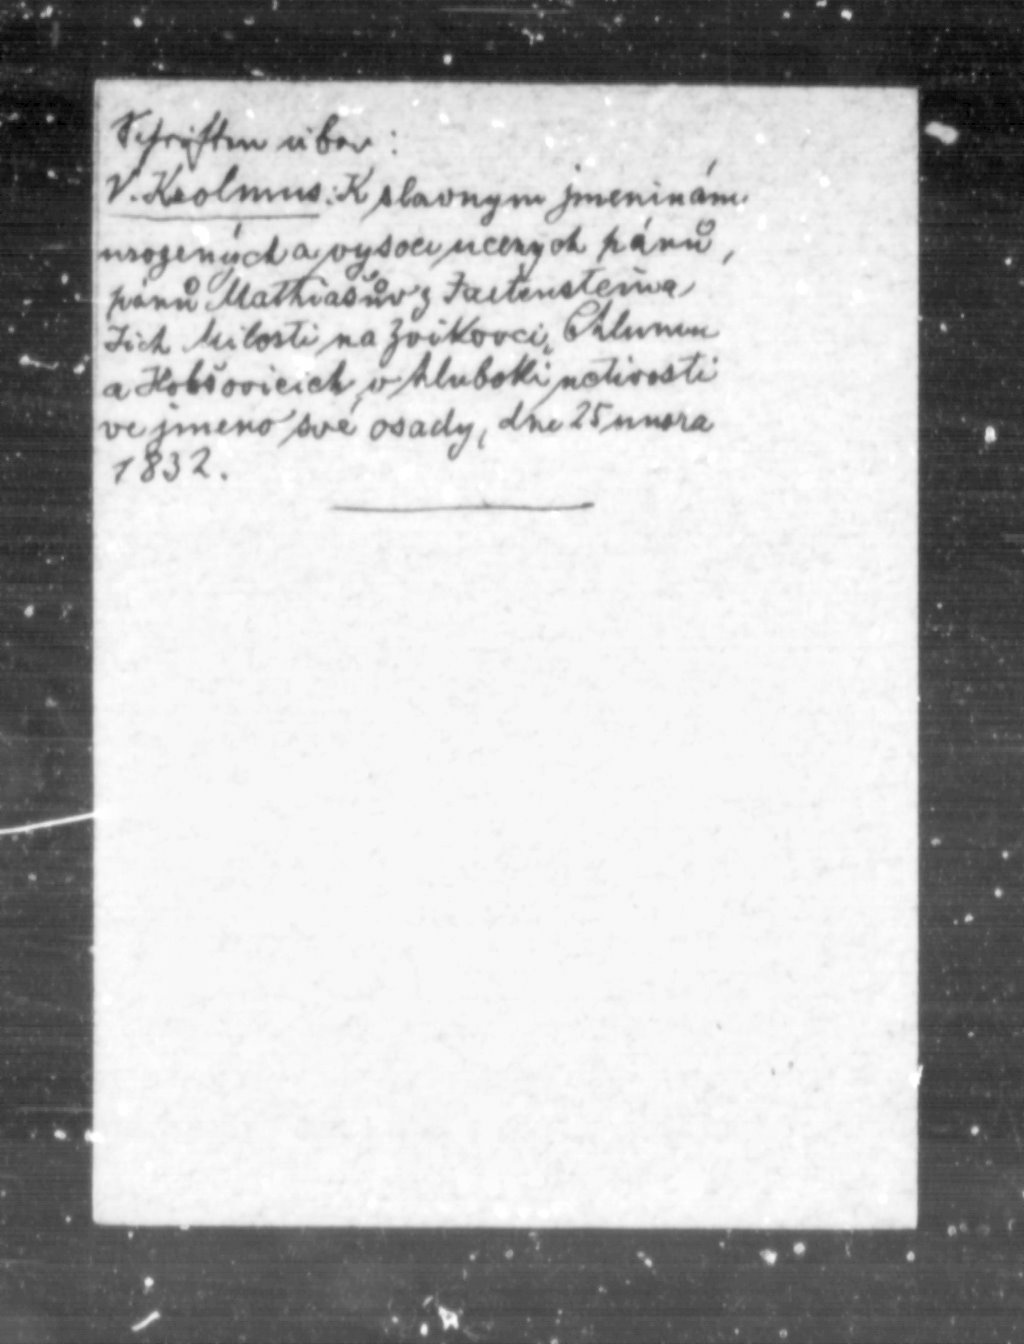 Schriften über:
V. Krolmus: K slavnym jmeninám
urozených a vysoce ucených pánů,
pánů Mathiašův z
Jich Milosti na Zvikovci, Chlumu
a Hobšovicich, v hluboki uctivosti
ve jmeno své osady, dne 25 unora
1832.